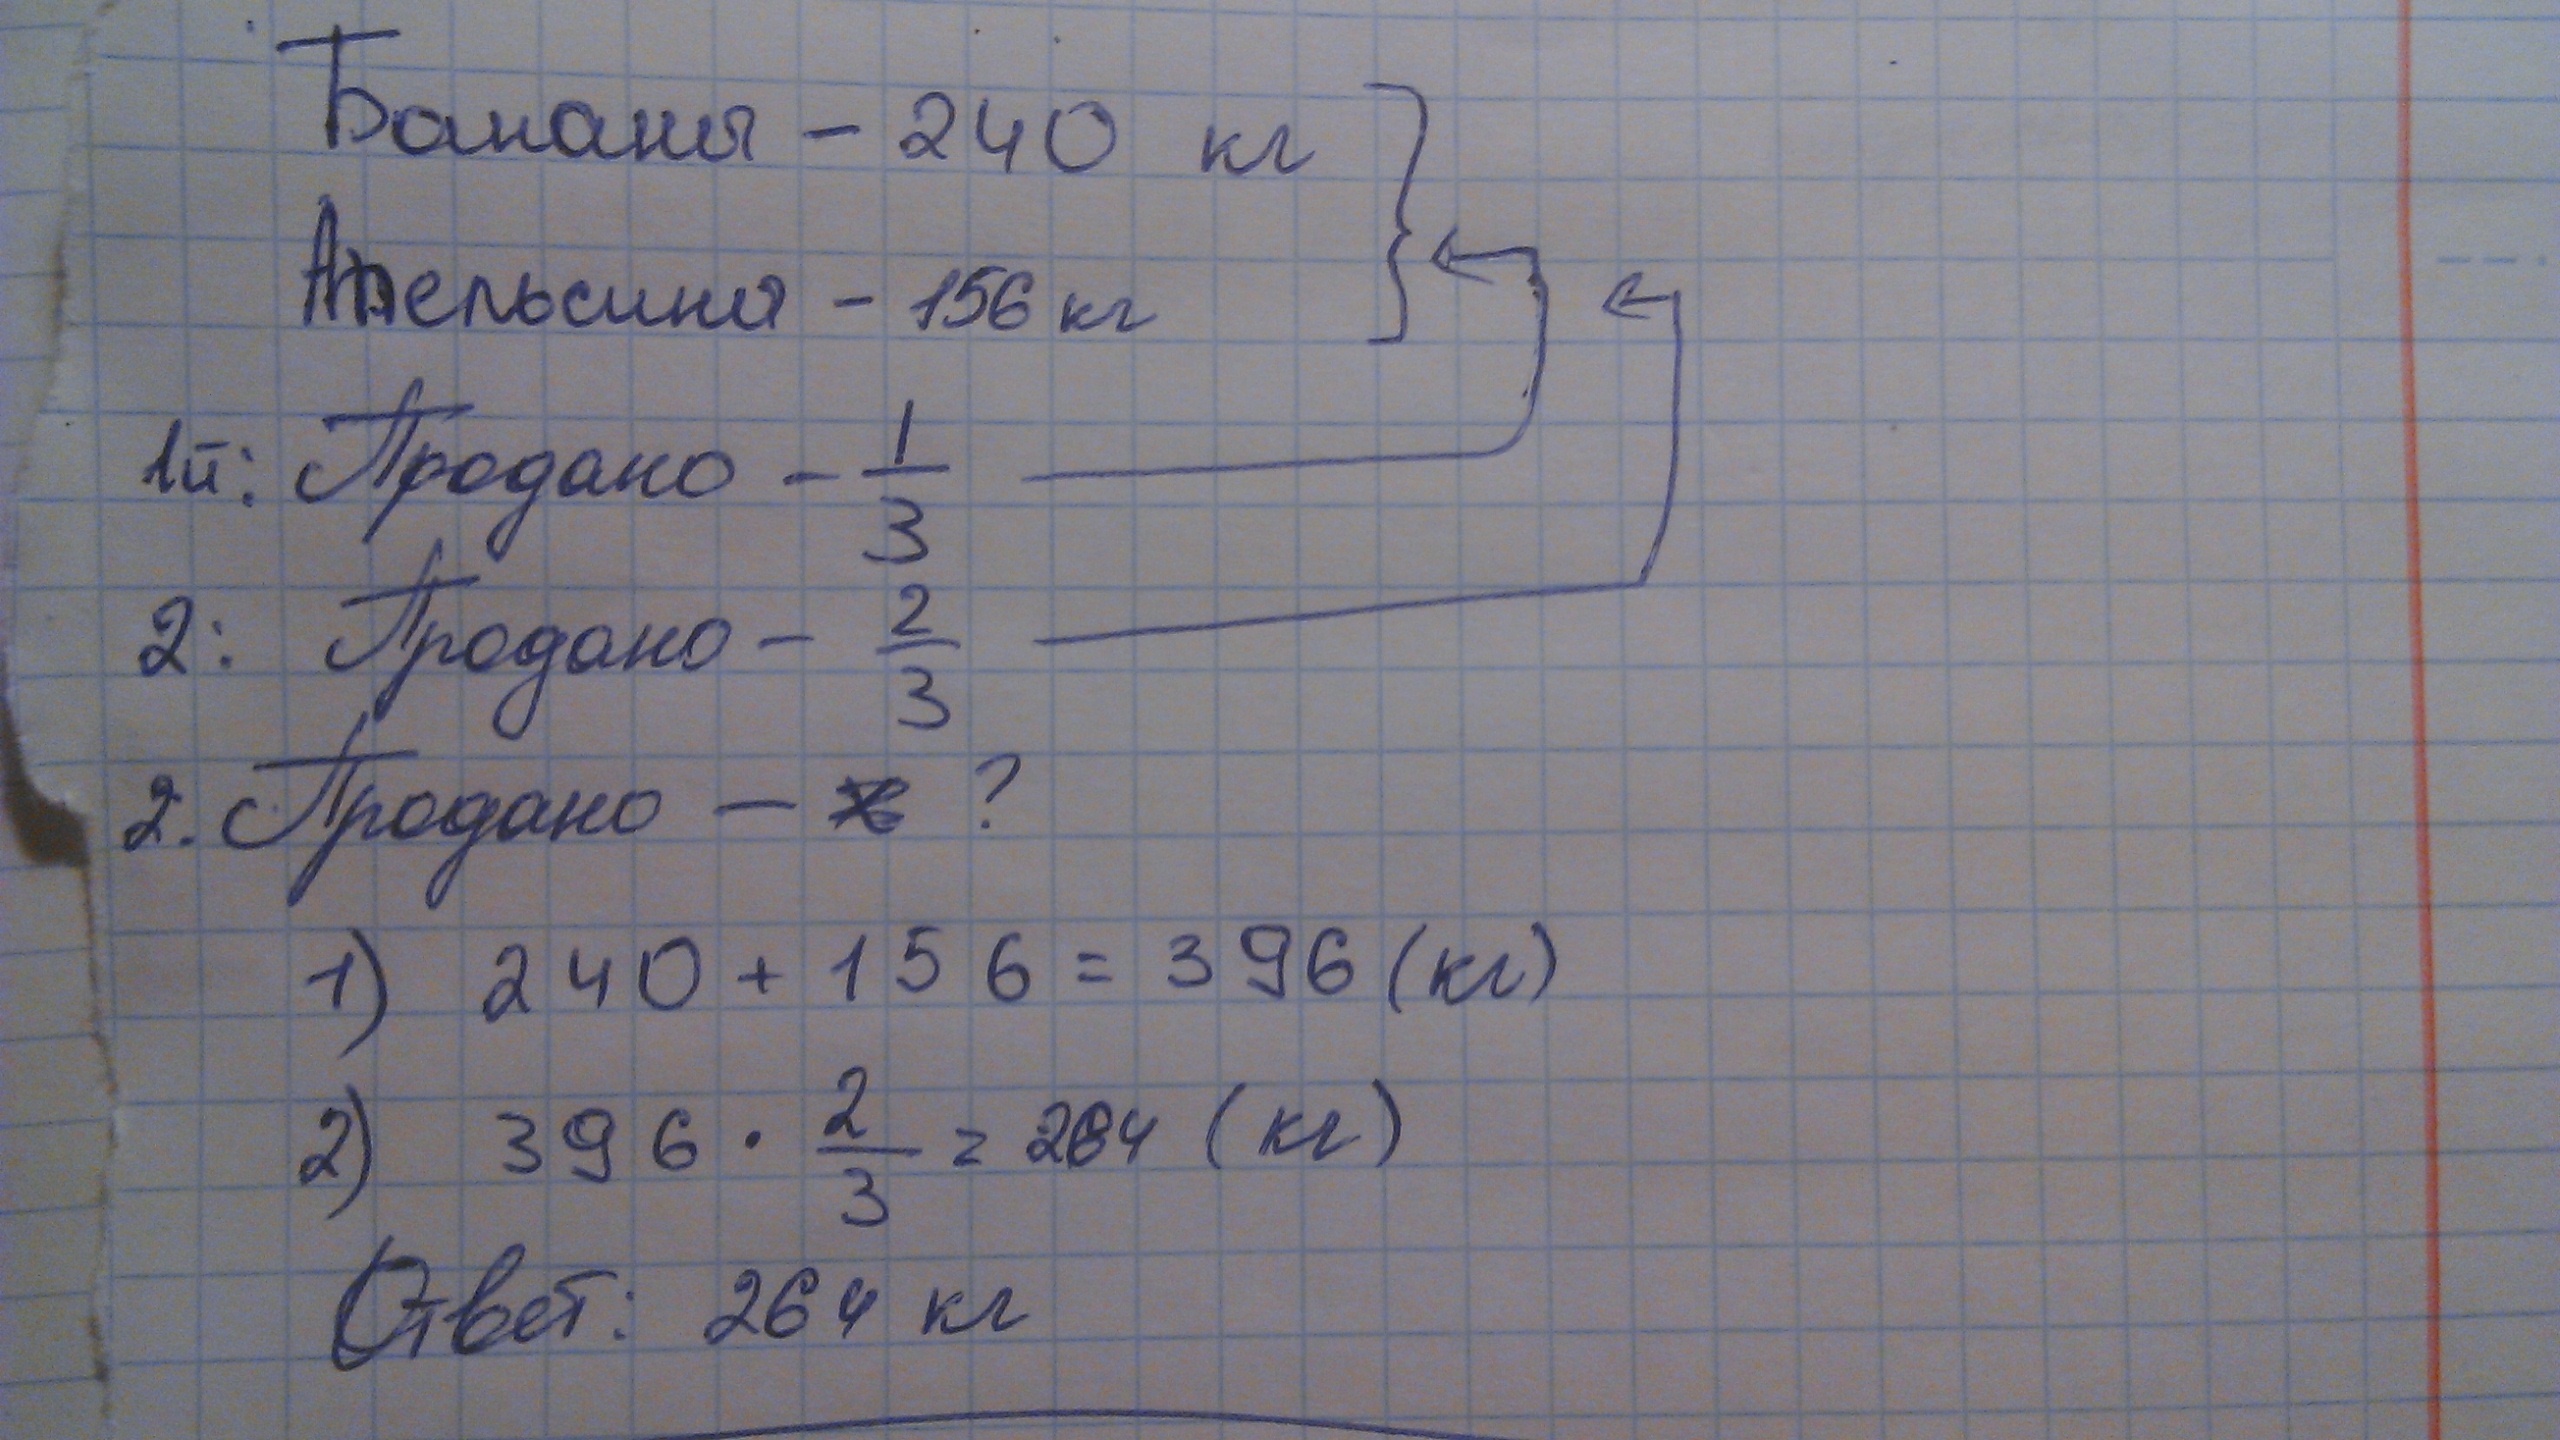 Бананы – 240 кг
Апельсины – 156 кг
1й: Продано – 1/3
2: Продано – 2/3
2. Продано – ?
1) 240 + 156 = 396 (кг)
2) 396 · 2/3 = 264 (кг)
Ответ: 264 кг